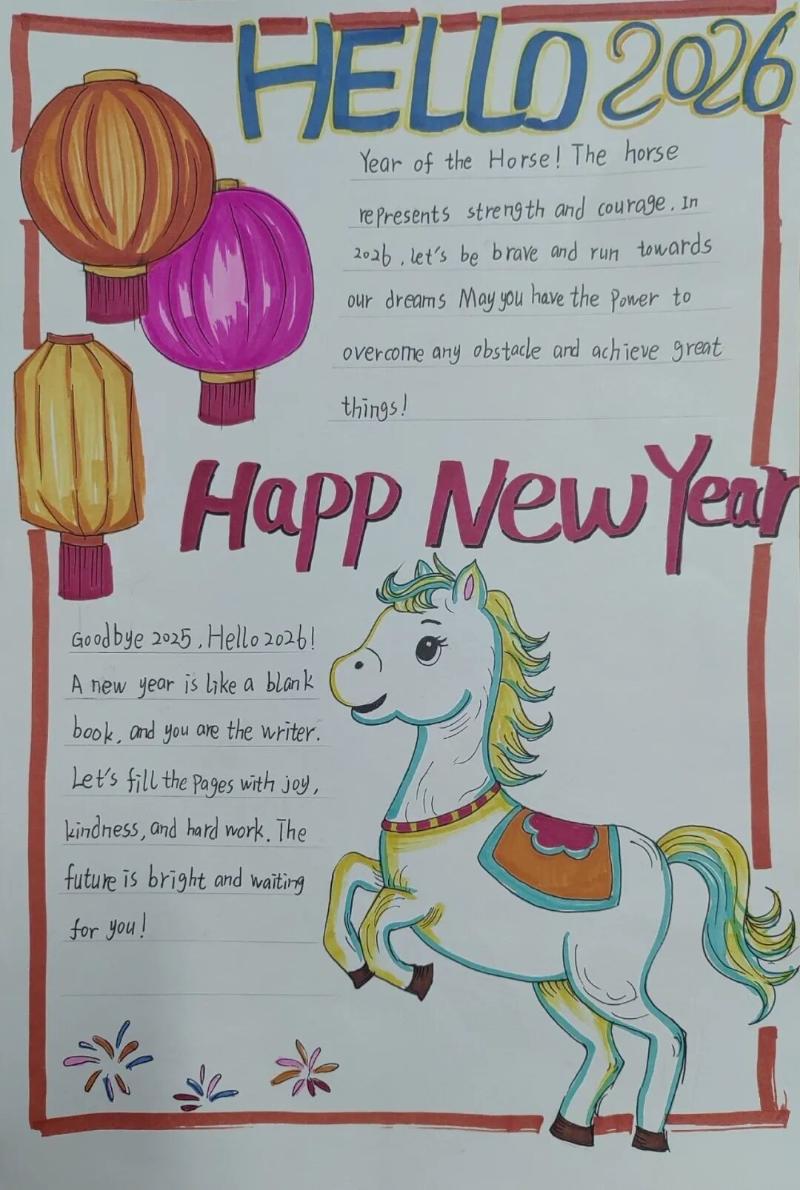 HELLO 2026
Year of the Horse! The horse
represents strength and courage. In
2026, let's be brave and run towards
our dreams May you have the power to
overcome any obstacle and achieve great
things!
Happ New Year
Goodbye 2025, Hello 2026!
A new year is like a blank
book, and you are the writer.
Let's fill the pages with joy,
kindness, and hard work. The
future is bright and waiting
for you!